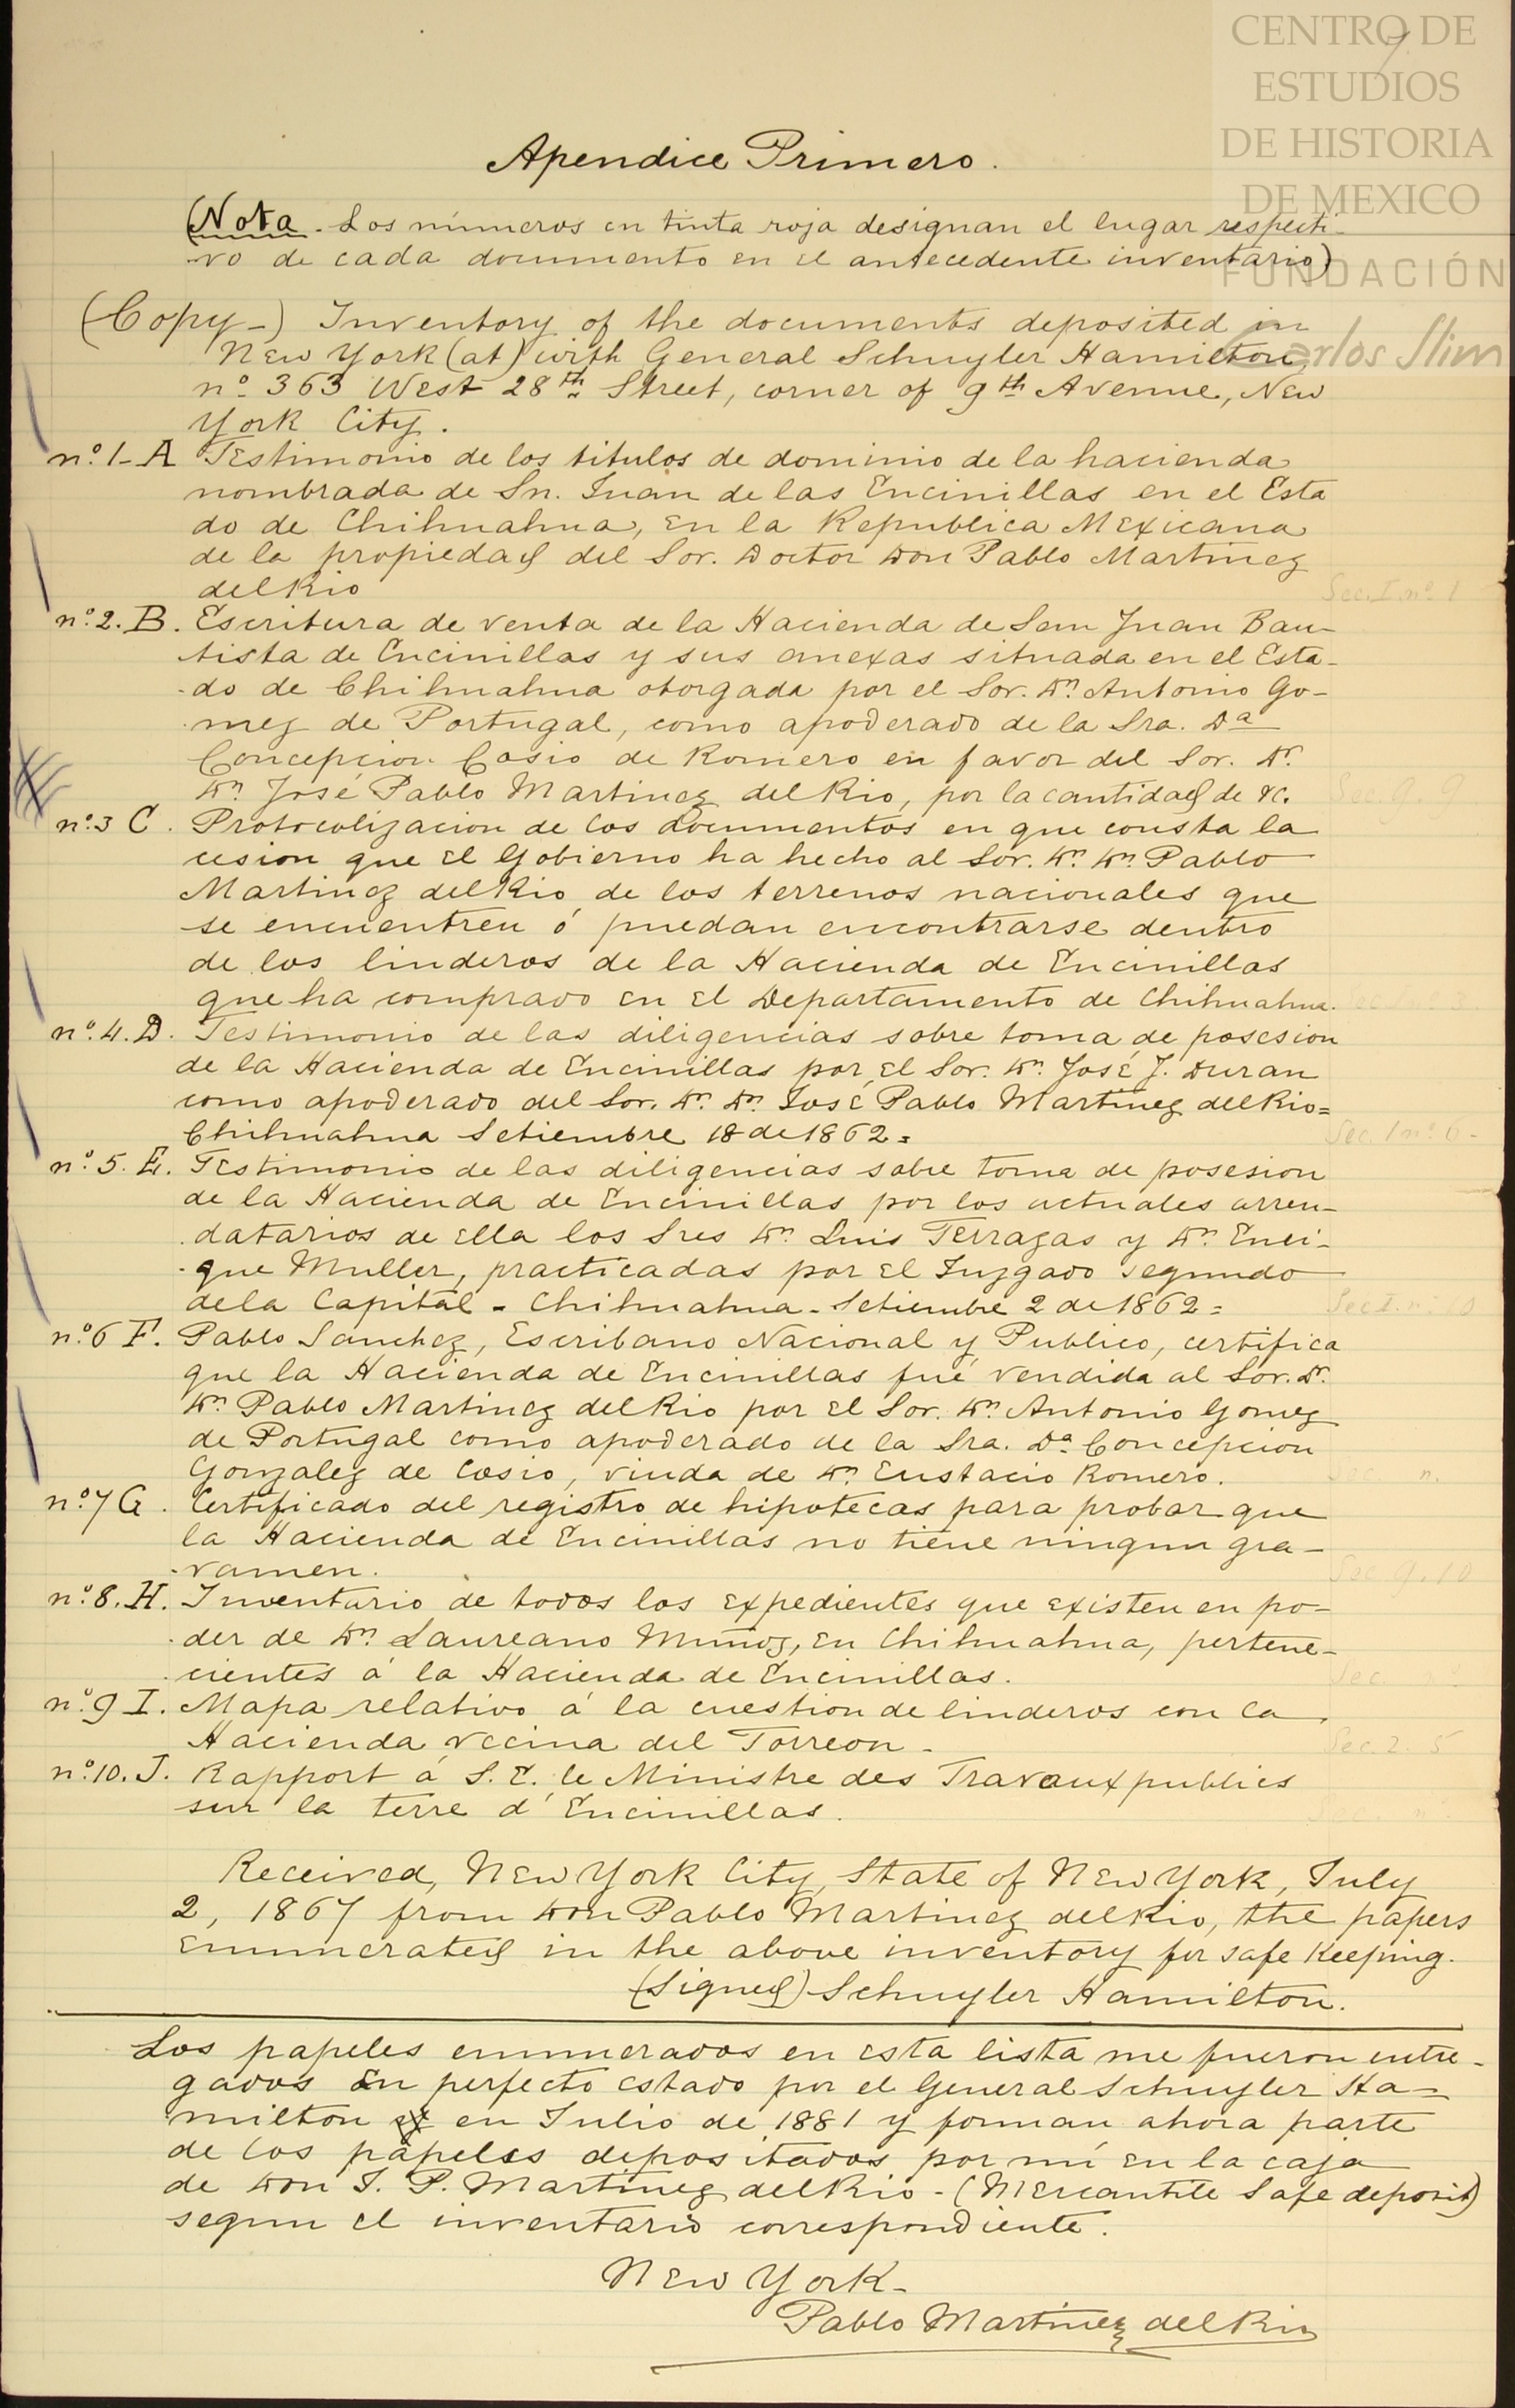 CENTRO DE
ESTUDIOS
DE HISTORIA
DE MEXICO
FUNDACIÓN
Carlos Slim
7.
Apendice Primero.
(Nota. Los números en tinta roja designan el lugar respecti-
-vo de cada documento en el antecedente inventario)
(Copy-) Inventory of the documents deposited in
New York (at) with General Schuyler Hamilton,
nº 363 West 28th Street, corner of 9th Avenue, New
York City.
nº.1-A Testimonio de los titulos de dominio de la hacienda
nombrada de Sn. Juan de las Encinillas en el Esta
do de Chihuahua, en la Republica Mexicana
de la propiedad del Sor. Doctor Don Pablo Martinez
del Rio
Sec. I. nº 1
nº.2.B. Escritura de venta de la Hacienda de San Juan Bau-
tista de Encinillas y sus anexas situada en el Esta-
-do de Chihuahua otorgada por el Sor. Dn. Antonio Go-
mez de Portugal, como apoderado de la Sra. Da
Concepcion Cosio de Romero en favor del Sor. Dr.
Dn. José Pablo Martinez del Rio, por la cantidad de &c.
nº.3 C. Protocolizacion de los documentos en que consta la
cesion que el Gobierno ha hecho al Sor. Dr. Dn. Pablo
Martinez del Rio de los terrenos nacionales que
se encuentren ó puedan encontrarse dentro
de los linderos de la Hacienda de Encinillas
que ha comprado en el Departamento de Chihuahua.
nº.4.D. Testimonio de las diligencias sobre toma de posesion
de la Hacienda de Encinillas por el Sor. Dn. José J. Duran
como apoderado del Sor. Dr. Dn. José Pablo Martinez del Rio=
Chihuahua Setiembre 18 de 1862=
Sec. I nº 6-
nº.5.E. Testimonio de las diligencias sobre toma de posesion
de la Hacienda de Encinillas por los actuales arren-
datarios de ella los Sres Dn. Luis Terrazas y Dn. Enri-
-que Muller, practicadas por el Juzgado segundo
de la Capital - Chihuahua - Setiembre 2 de 1862=
Sec I. nº 10
nº.6 F. Pablo Sanchez, Escribano Nacional y Publico, certifica
que la Hacienda de Encinillas fué vendida al Sor. Dr.
Dn. Pablo Martinez del Rio por el Sor. Dn. Antonio Gomez
de Portugal como apoderado de la Sra. Da. Concepcion
Gonzalez de Cosio, viuda de Dn. Eustacio Romero.
nº.7 G. Certificado del registro de hipotecas para probar que
la Hacienda de Encinillas no tiene ningun gra-
-vamen.
nº.8.H. Inventario de todos los expedientes que existen en po-
-der de Dn. Laureano Muñoz, en Chihuahua, pertene-
-cientes á la Hacienda de Encinillas.
nº.9 I. Mapa relativo á la cuestion de linderos con la
Hacienda vecina del Torreon-
Sec. 2. 5
nº.10.J. Rapport á S. E. le Ministre des Travaux publics
sur la terre d'Encinillas.
Received, New York City, State of New York, July
2, 1867 from Don Pablo Martinez del Rio, the papers
enumerated in the above inventory for safe keeping.
(Signed) Schuyler Hamilton.
Los papeles enumerados en esta lista me fueron entre-
gados en perfecto estado por el General Schuyler Ha-
milton en Julio de 1881 y forman ahora parte
de los papeles depositados por mí en la caja
de Don J. P. Martinez del Rio - (Mercantile Safe deposit)
segun el inventario correspondiente.
New York-
Pablo Martinez del Rio